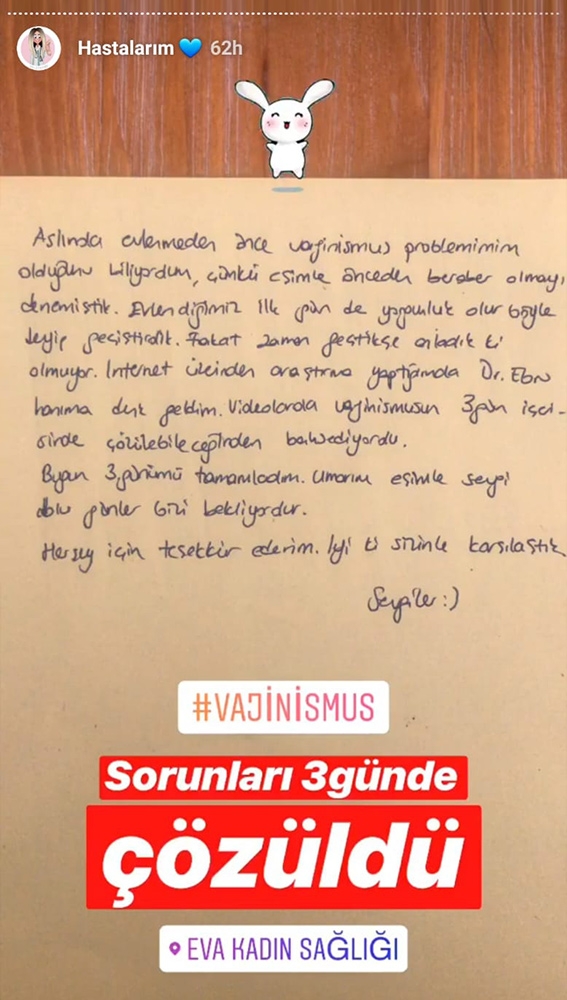 Hastalarım 💙 62h
Aslında evlenmeden önce vajinismus problemimin
olduğunu biliyordum, çünkü eşimle önceden beraber olmayı
denemiştik. Evlendiğimiz ilk gün de yorgunluk olur böyle
deyip geçiştirdik. Fakat zaman geçtikçe anladık ki
olmuyor. İnternet üzerinden araştırma yaptığımda Dr. Ebru
hanıma denk geldim. Videolarda vajinismusun 3 gün içeri-
sinde çözülebileceğinden bahsediyordu.
Bugün 3. günümü tamamladım. Umarım eşimle sevgi
dolu günler bizi bekliyordur.
Herşey için teşekkür ederim. İyi ki sizinle karşılaştık
Sevgiler :)
#VAJİNİSMUS
Sorunları 3günde
çözüldü
EVA KADIN SAĞLIĞI